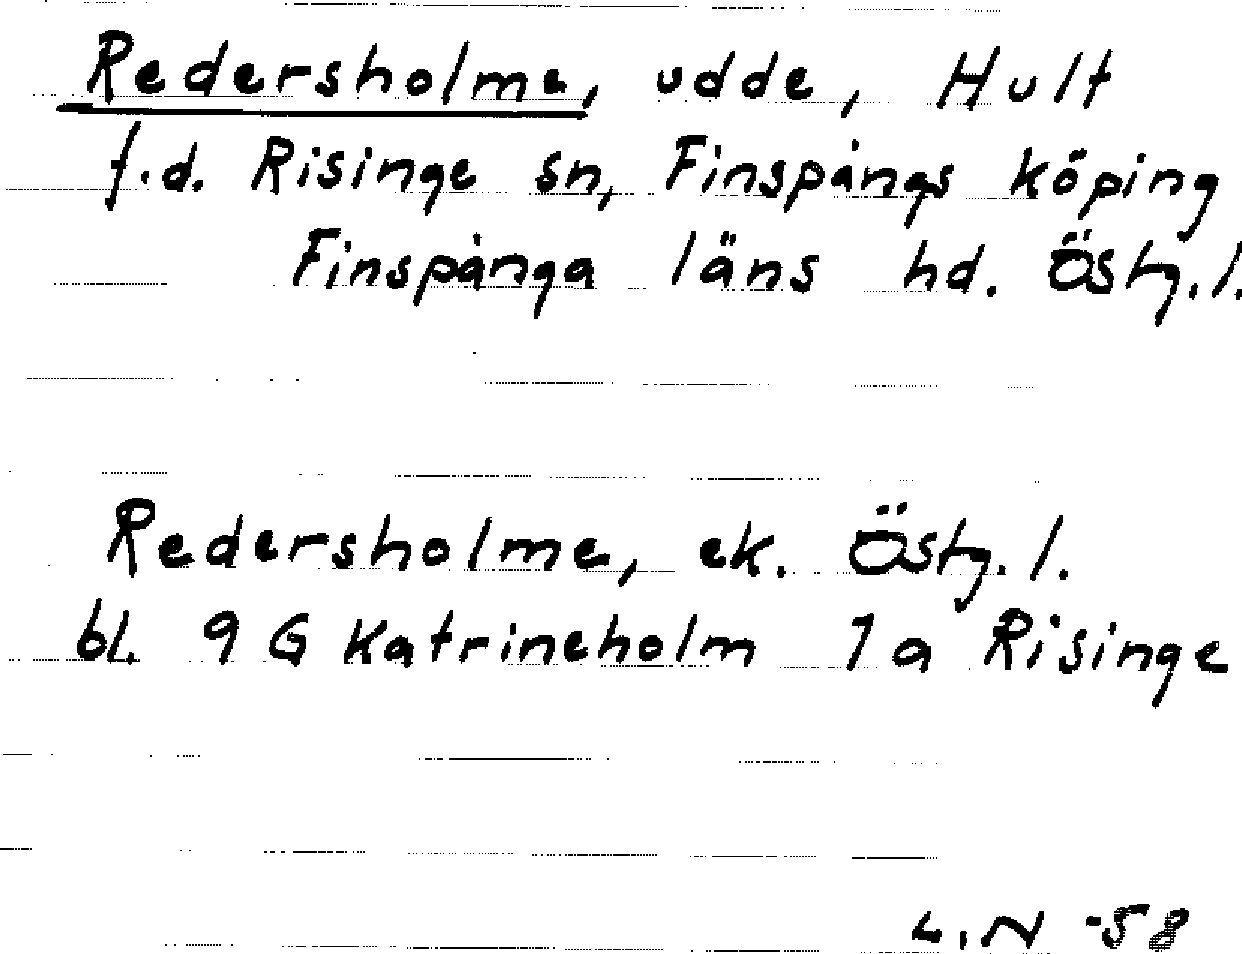 Redersholme, udde, Hult
f.d. Risinge sn, Finspångs köping
Finspånga läns hd. Östg.l.
Redersholme, ek. Östg.l.
bl. 9 G Katrineholm 7 a Risinge
L.N -58